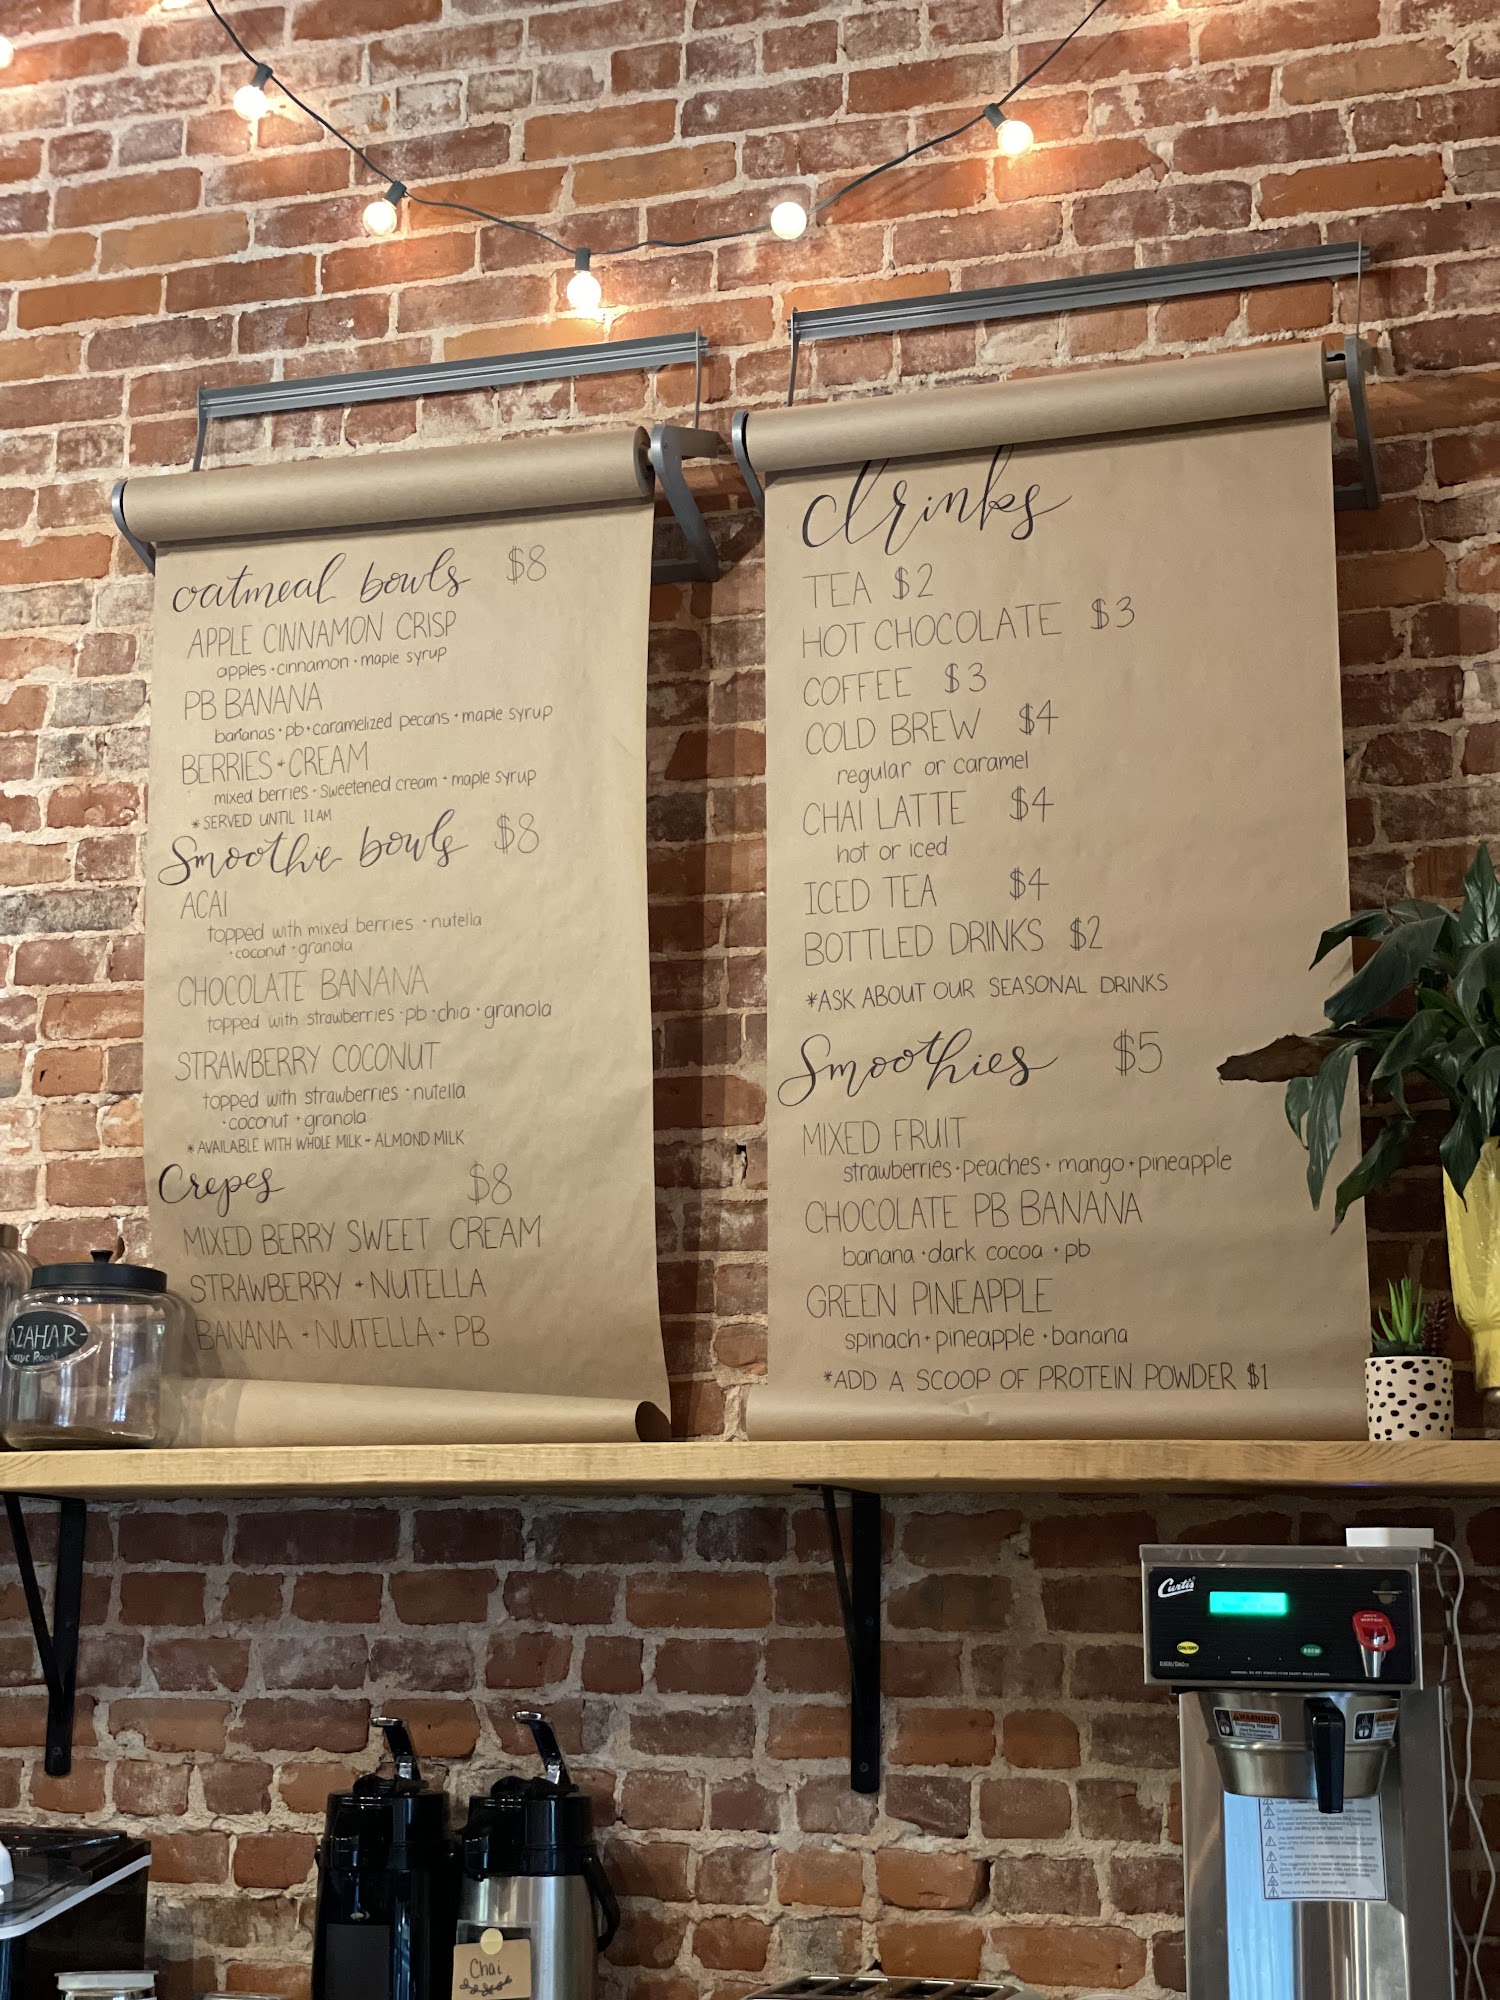 oatmeal bowls $8
APPLE CINNAMON CRISP
apples • cinnamon • maple syrup
PB BANANA
bananas • pb • caramelized pecans • maple syrup
BERRIES + CREAM
mixed berries • sweetened cream • maple syrup
*SERVED UNTIL 11AM
Smoothie bowls $8
ACAI
topped with mixed berries • nutella
• coconut • granola
CHOCOLATE BANANA
topped with strawberries • pb • chia • granola
STRAWBERRY COCONUT
topped with strawberries • nutella
• coconut • granola
*AVAILABLE WITH WHOLE MILK + ALMOND MILK
Crepes $8
MIXED BERRY SWEET CREAM
STRAWBERRY + NUTELLA
BANANA + NUTELLA + PB
drinks
TEA $2
HOT CHOCOLATE $3
COFFEE $3
COLD BREW $4
regular or caramel
CHAI LATTE $4
hot or iced
ICED TEA $4
BOTTLED DRINKS $2
*ASK ABOUT OUR SEASONAL DRINKS
Smoothies $5
MIXED FRUIT
strawberries • peaches • mango • pineapple
CHOCOLATE PB BANANA
banana • dark cocoa • pb
GREEN PINEAPPLE
spinach • pineapple • banana
*ADD A SCOOP OF PROTEIN POWDER $1
AZAHAR
Curtis
ON/OFF
BREW
HOT WATER
WARNING
Chai